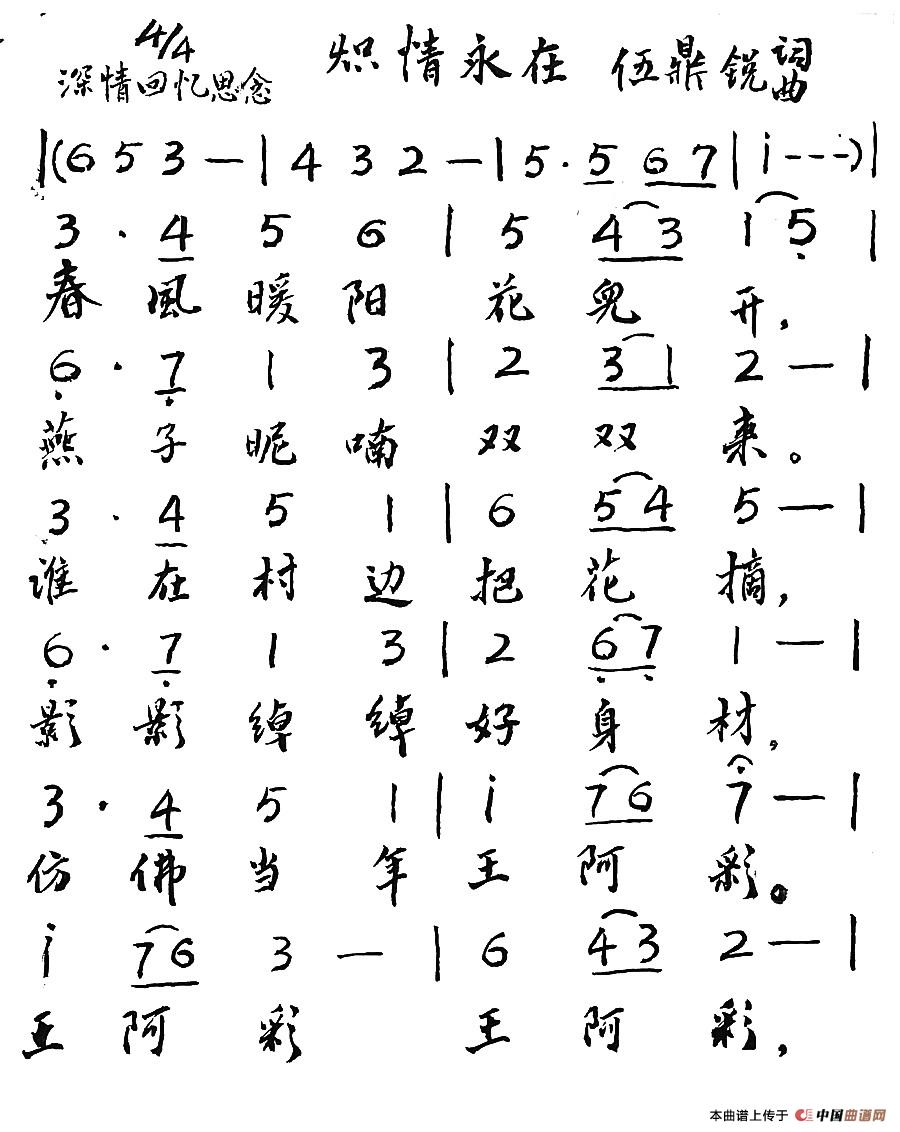 4/4 炽情永在 伍鼎锐 词曲
深情回忆思念
|(6 5 3 —| 4 3 2 —| 5. 5 6 7 | i - - -)|
3 . 4 5 6 | 5 4 3 1 5 |
春風暖阳 花兒 开,
6 . 7 1 3 | 2 3 1 2 — |
燕子昵喃 双双来。
3 . 4 5 1 | 6 5 4 5 — |
谁在村边把花摘,
6 . 7 1 3 | 2 6 7 1 — |
影影绰绰好身材,
3 . 4 5 1 | i 7 6 7 — |
仿佛当年王阿彩。
i 7 6 3 — | 6 4 3 2 — |
王阿彩 王阿彩,
本曲谱上传于 中国曲谱网